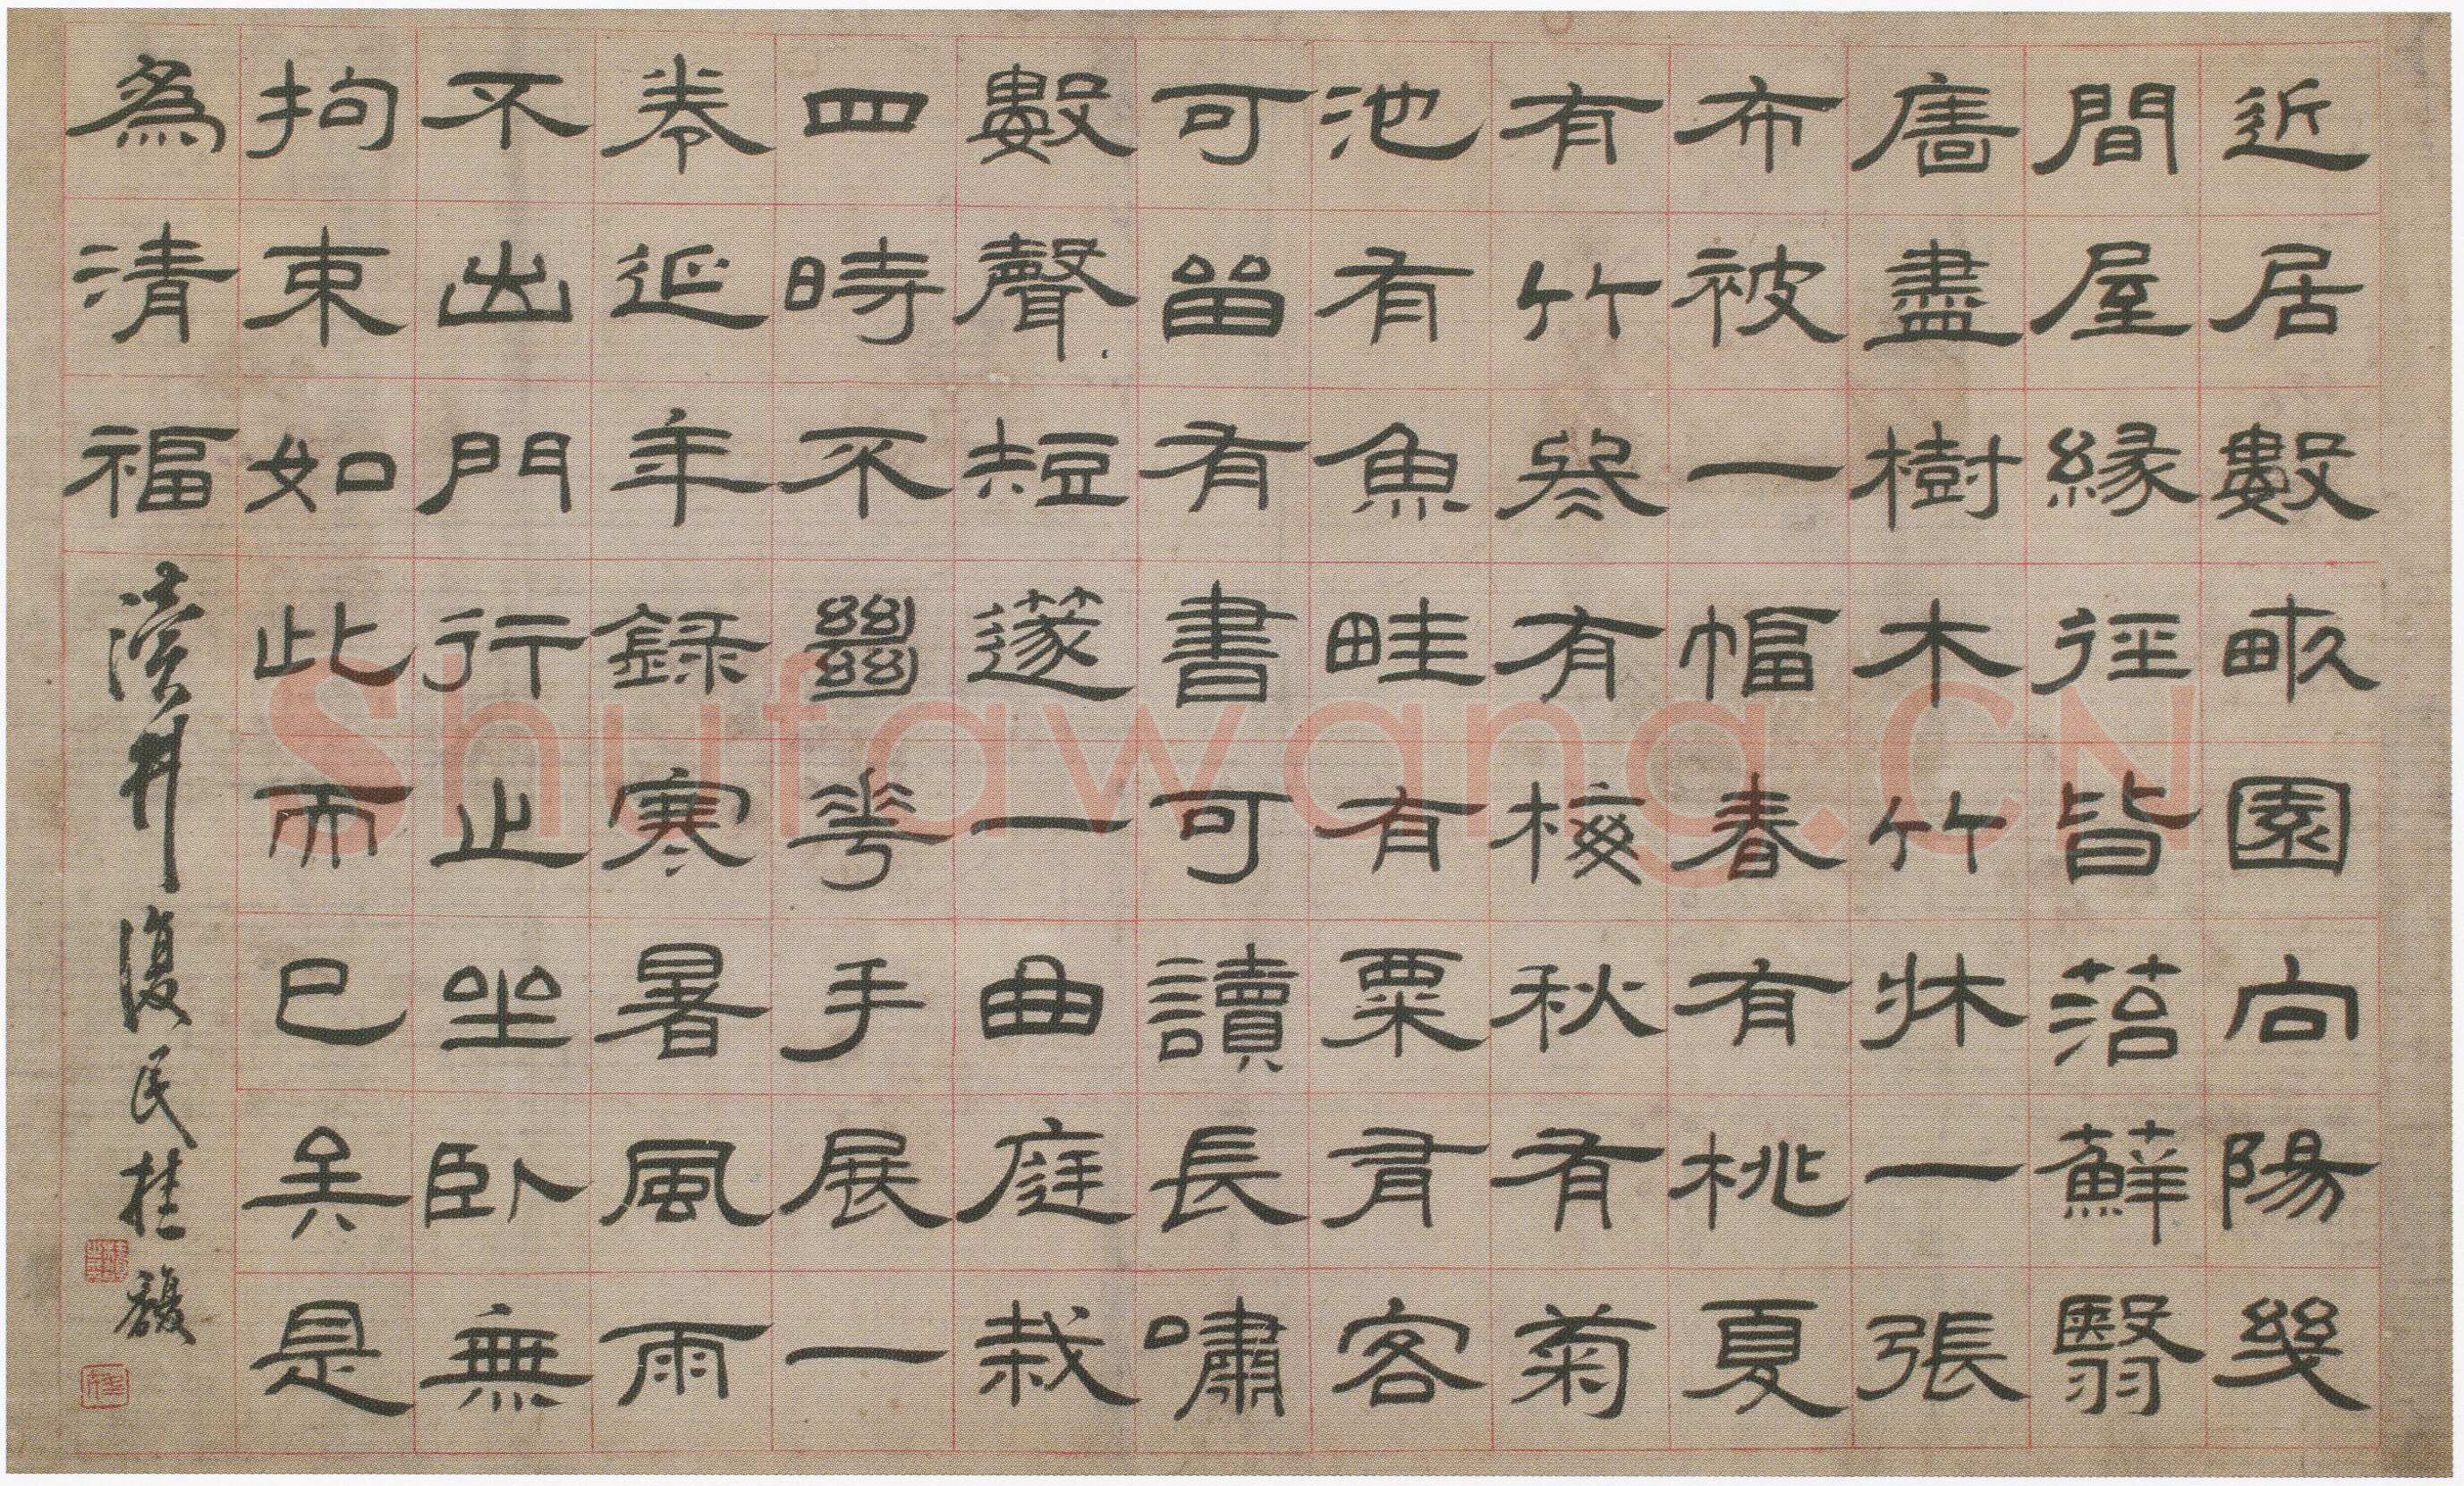 近居數畝園向陽幾
間屋緣徑皆菭蘚翳
牆盡樹木竹牀一張
布被一幅春有桃夏
有竹冬有梅秋有菊
池有魚畦有粟有客
可留有書可讀長嘯
數聲短籧一曲庭栽
四時不斷花手展一
卷延年錄寒暑風雨
不出門行止坐臥無
拘束如此而已矣是
為清福
瀆井復民桂馥
Shufawang.CN